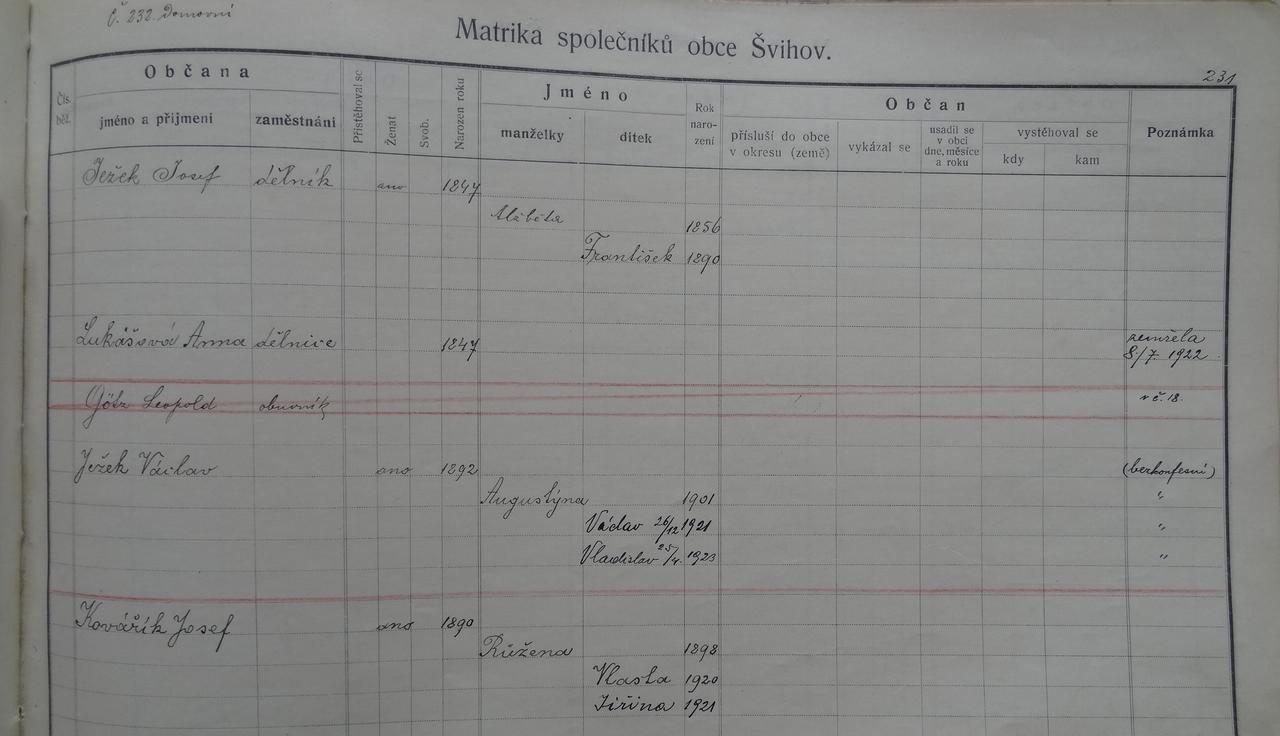 č 232 domovní
Matrika společníků obce Švihov.
231
Čís. běž.
Občana
jméno a přijmení
zaměstnání
Přistěhoval se
Ženat
Svob.
Narozen roku
Jméno
manželky
dítek
Rok naro- zení
Občan
přísluší do obce v okresu (země)
vykázal se
usadil se v obci dne, měsíce a roku
vystěhoval se
kdy
kam
Poznámka
Ježek Josef dělník ano 1847
Alžběta 1856
František 1890
Lukášová Anna dělnice 1847 zemřela
8./7. 1922.
Götz Leopold obuvník v č. 18.
Ježek Václav ano 1892 (bezkonfesní)
Augustýna 1901 "
Václav 26/12 1921 "
Vladislav 25/4. 1923 "
Kovářík Josef ano 1890
Růžena 1898
Vlasta 1920
Jiřina 1921